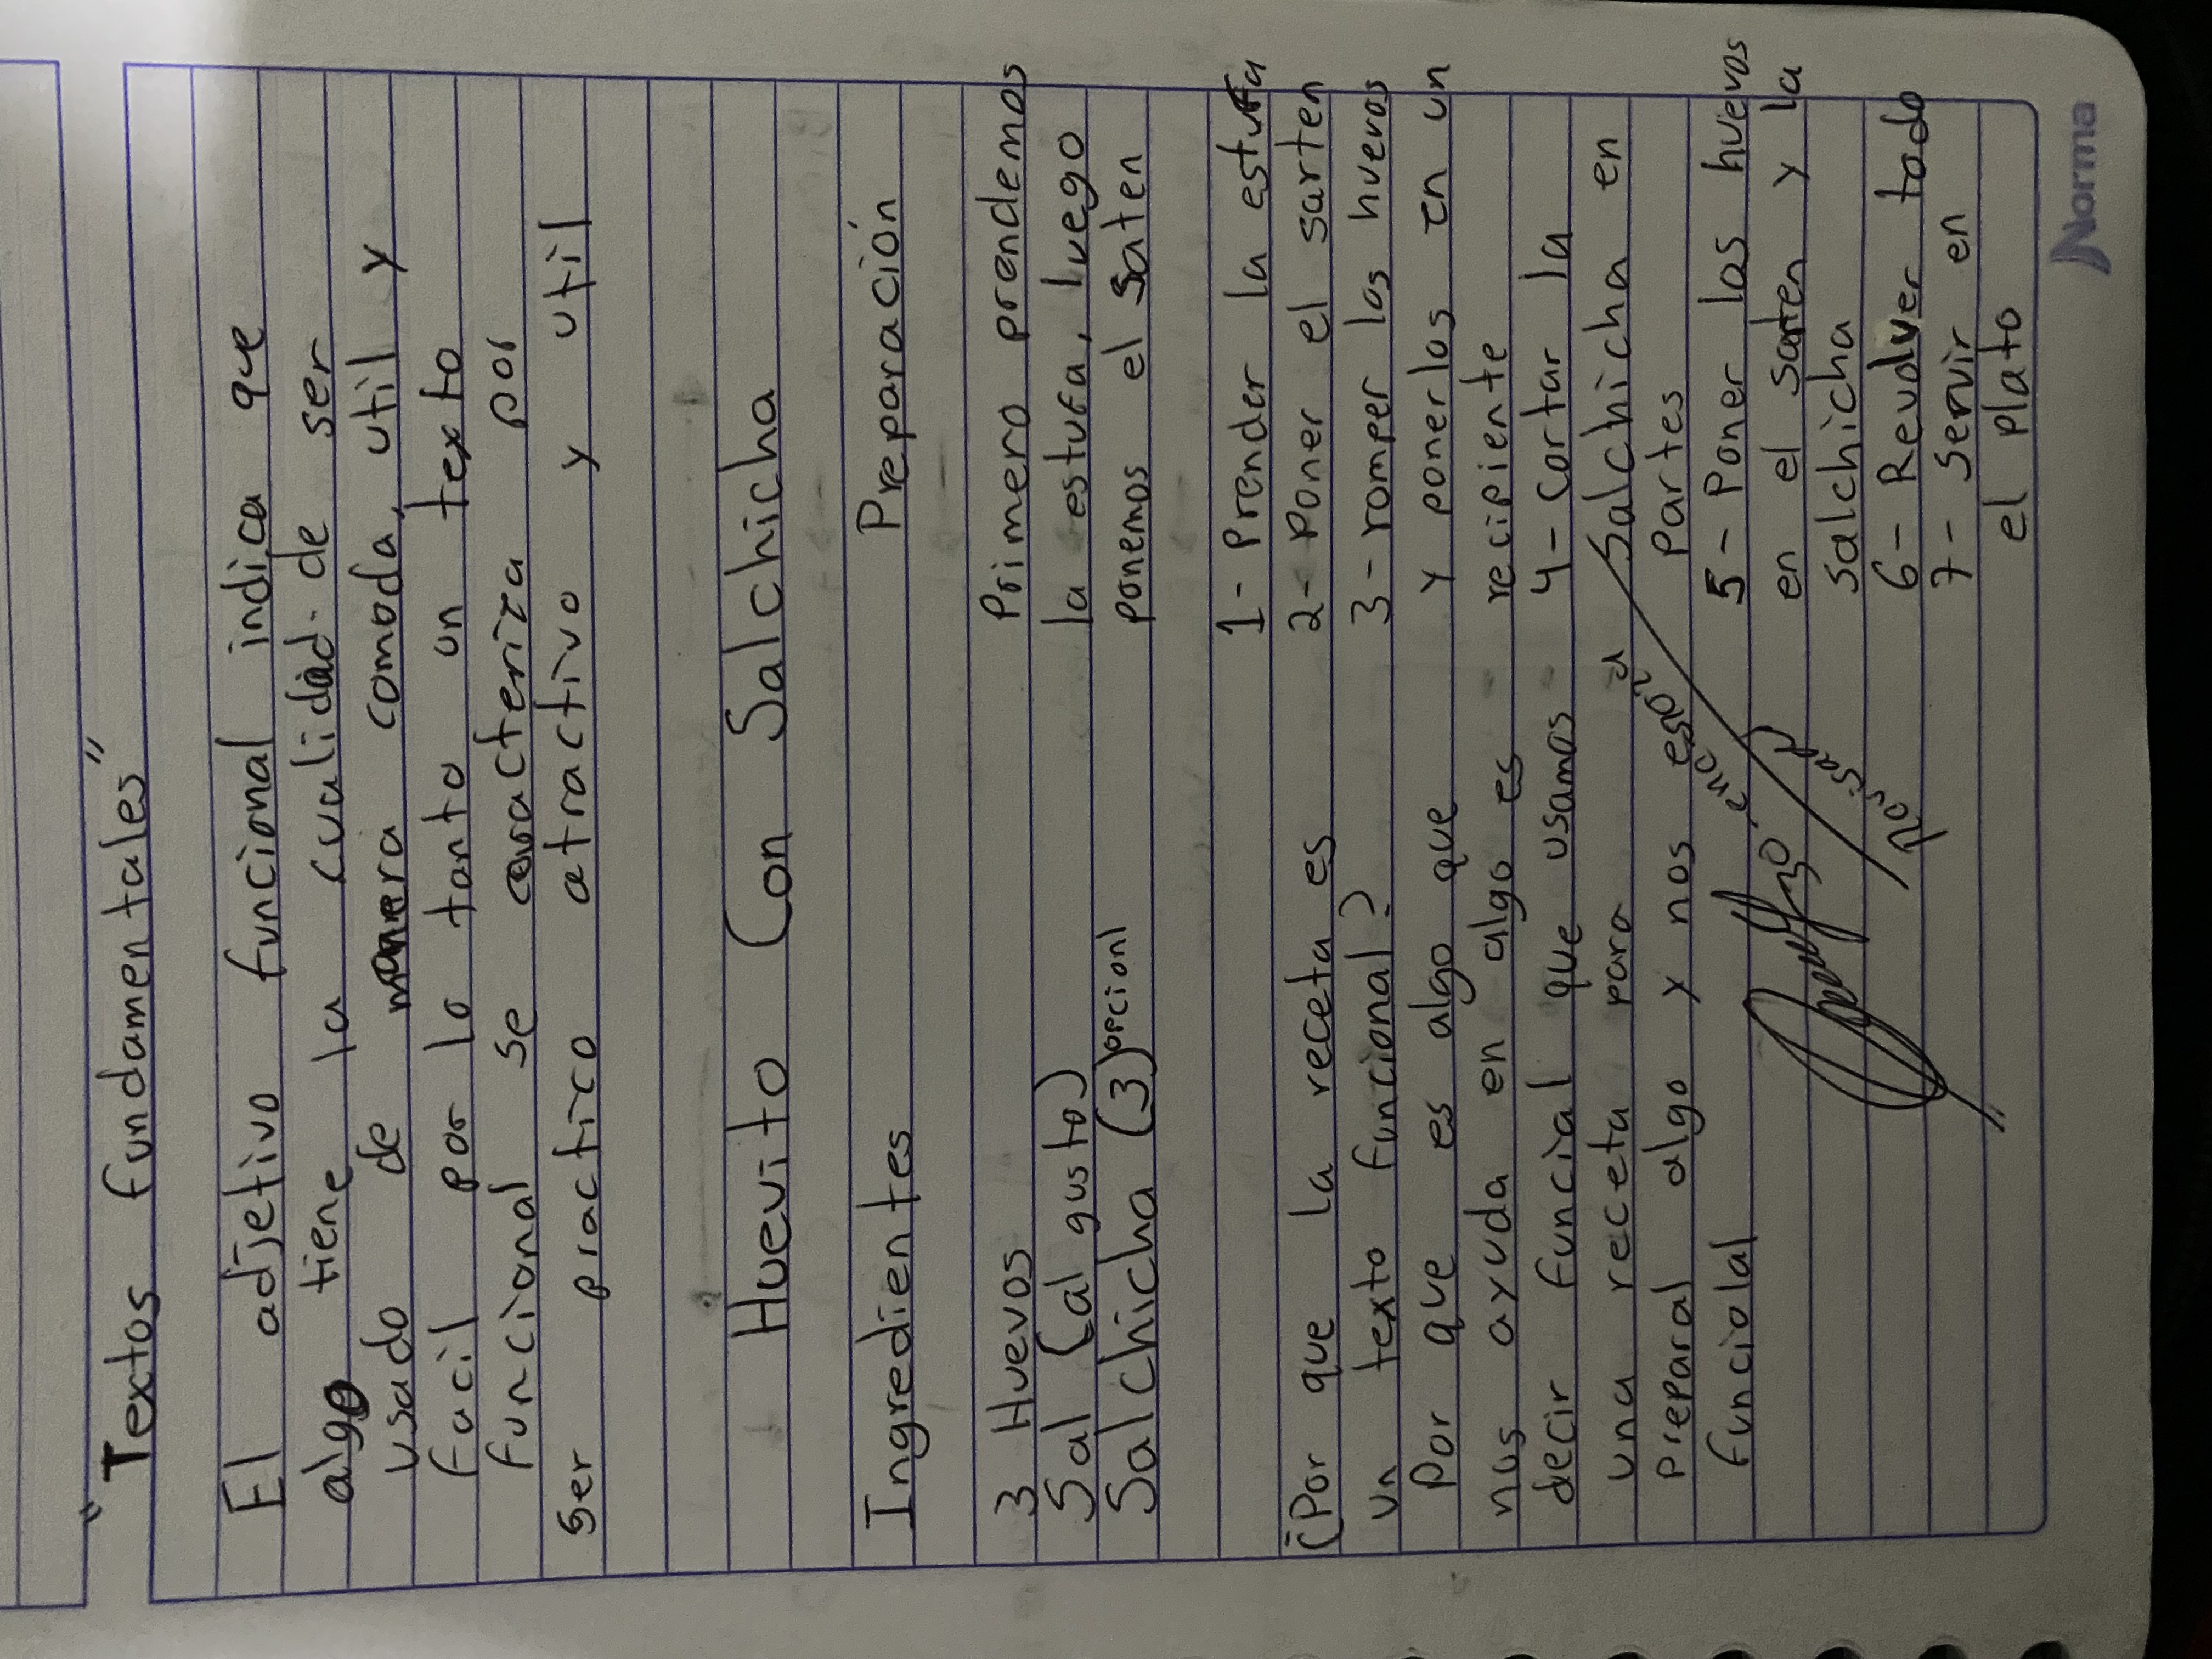 "Textos fundamentales"
El adjetivo funcional indica que
algo tiene la cualidad de ser
usado de manera comoda, util y
facil por lo tanto un texto
funcional se caracteriza por
ser practico atractivo y util
Huevito Con Salchicha
Ingredientes
3 Huevos
Sal (al gusto)
Salchicha (3) opcionl
Preparación
Primero prendemos
la estufa, luego
ponemos el saten
1- Prender la estufa
2- Poner el sarten
3- romper los huevos
y ponerlos en un
recipiente
4- Cortar la
Salchicha en
Partes
5- Poner los huevos
en el sarten y la
salchicha
6- Revolver todo
7- Servir en
el plato
¿Por que la receta es
un texto funcional?
Por que es algo que
nos ayuda en algo es
decir funcial que usamos
una receta para
preparal algo y nos
funciolal
Norma